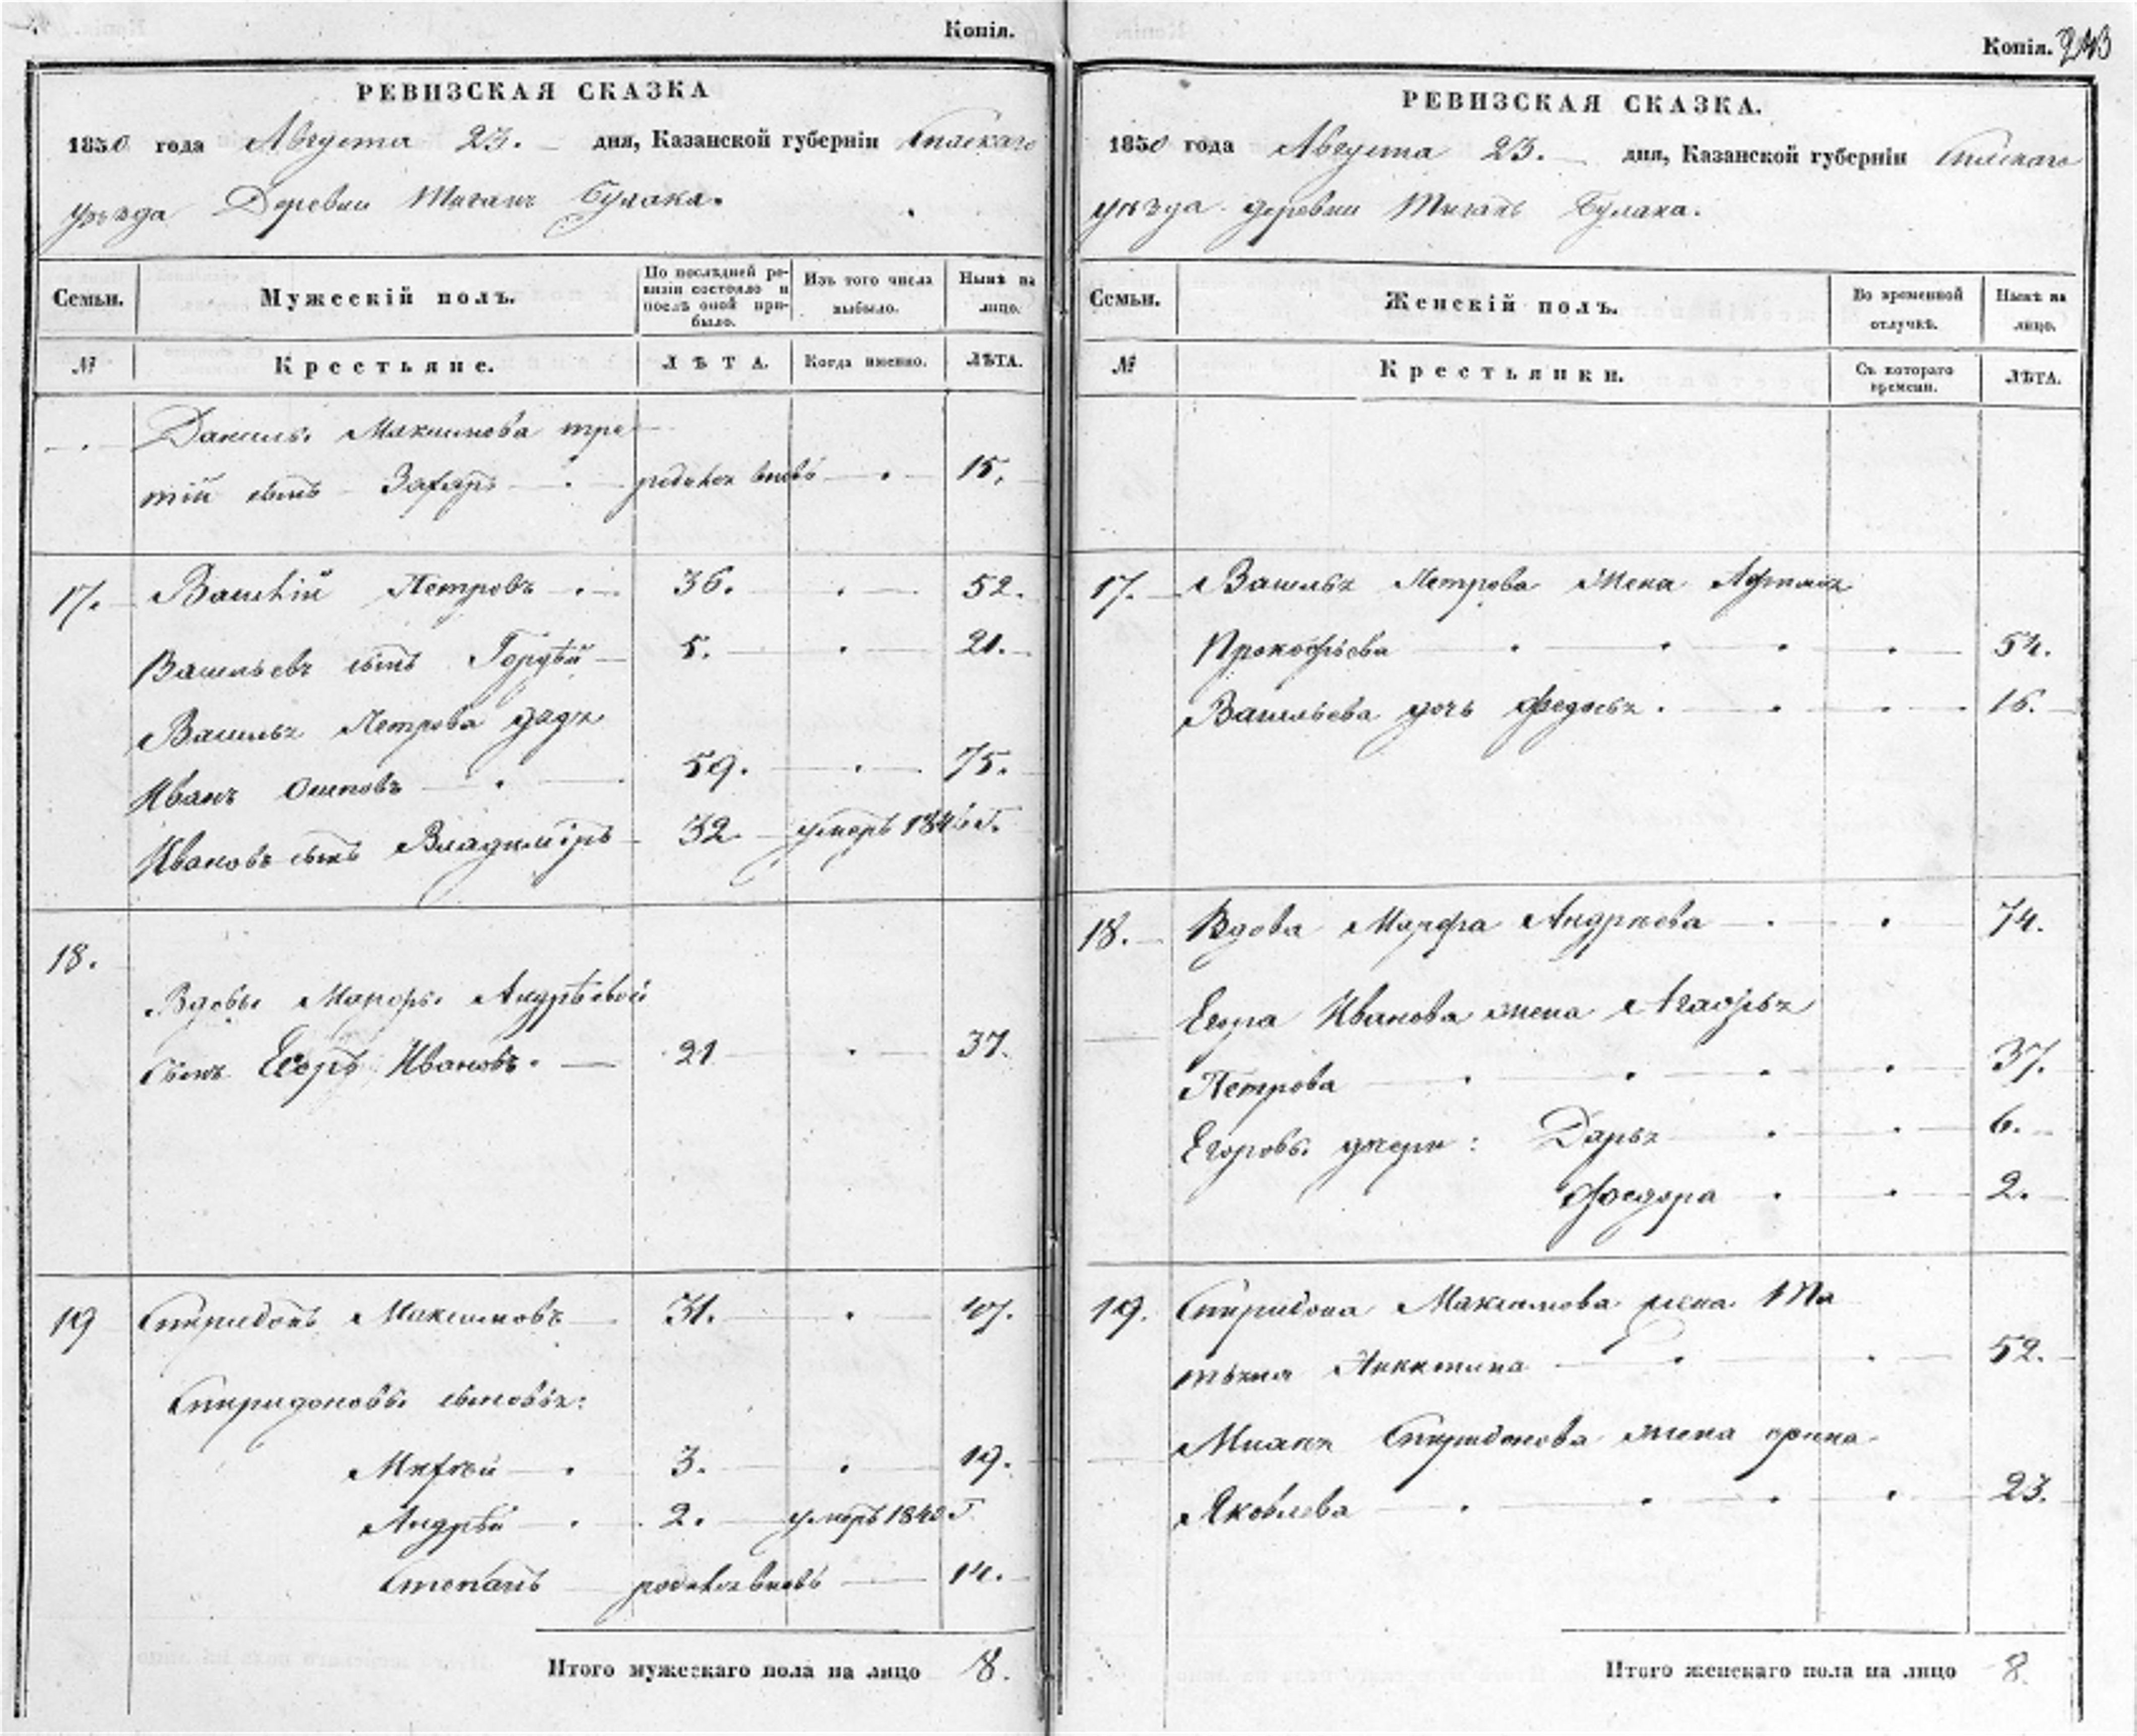 Копія.
РЕВИЗСКАЯ СКАЗКА
1850 года Августа 23. дня, Казанской губерніи Спаскаго
уѣзда Деревни Тиганъ Булака.
Семьи.
Мужескій полъ.
По послѣдней ревизіи состояло и послѣ оной прибыло.
Изъ того числа выбыло.
Нынѣ на лицо.
№
Крестьяне.
ЛѢТА.
Когда именно.
ЛѢТА.
Данилы Максимова тре
тій сынъ Захаръ родился вновь 15.
17. Василій Петровъ 36. 52.
Васильевъ сынъ Гордѣй 5. 21.
Василья Петрова дядя
Иванъ Осиповъ 59. 75.
Ивановъ сынъ Владиміръ 32 умеръ 1846 г.
18.
Вдовы Марфы Андрѣевой
сынъ Егоръ Ивановъ. 21 37.
19 Спиридонъ Максимовъ 31. 47.
Спиридоновы сыновья:
3. 19.
Андрѣй 2. умеръ 1840 г
Степанъ родился вновь 14.
Итого мужескаго пола на лицо 8.
Копія. 243
РЕВИЗСКАЯ СКАЗКА.
1850 года Августа 23. дня, Казанской губерніи Спаскаго
уѣзда деревни Тиганъ Булака.
Семьи.
Женскій полъ.
Во временной отлучкѣ.
Нынѣ на лицо.
№
Крестьянки.
Съ котораго времени.
ЛѢТА.
17. Василья Петрова жена
Прокофьева 54.
Васильева дочь Федосья. 16.
18. Вдова Марфа Андрѣева 74.
Егора Иванова жена Агафья
Петрова 37.
Егоровы дочери: Дарья 6.
Федора 2.
19. Спиридона Максимова жена Та
тьяна Никитина 52.
Спиридонова жена Ирина
Яковлева 23.
Итого женскаго пола на лицо 8